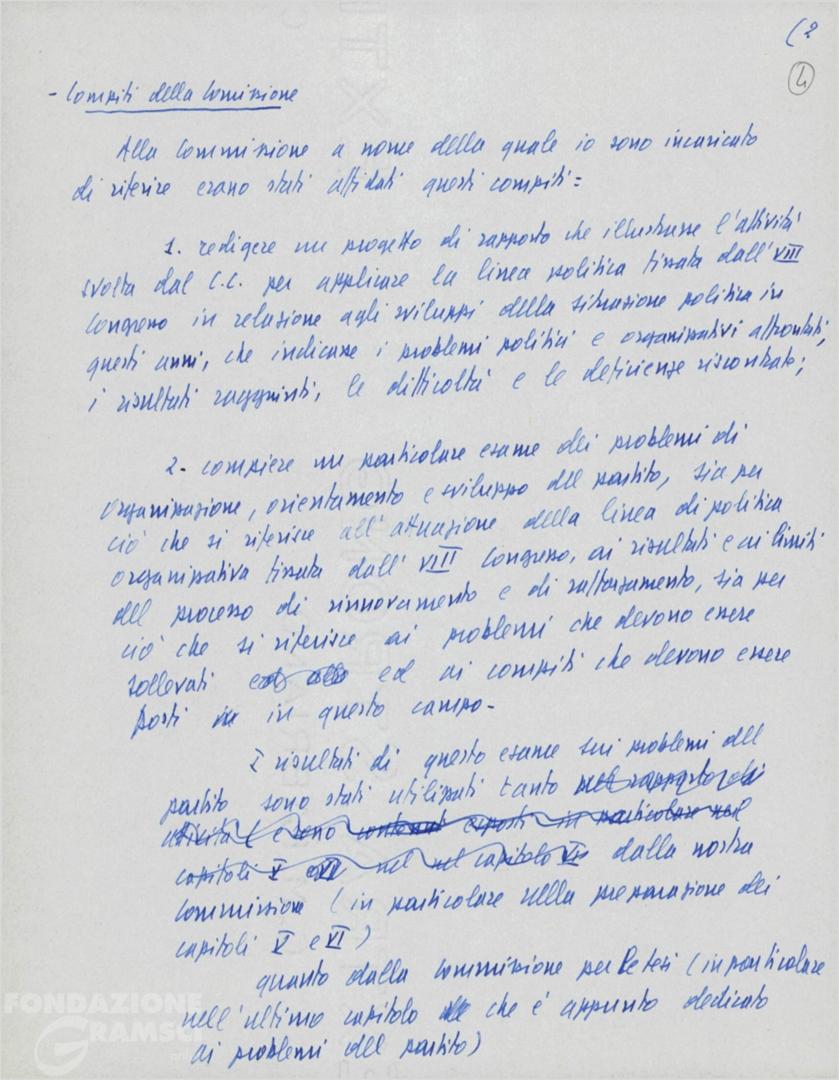 (2
4
- Compiti della Commissione
Alla Commissione a nome della quale io sono incaricato
di riferire erano stati affidati questi compiti:
1. redigere un progetto di rapporto che illustrasse l'attività
svolta dal C.C. per applicare la linea politica fissata dall'VIII
Congresso in relazione agli sviluppi della situazione politica in
questi anni, che indicasse i problemi politici e organizzativi affrontati,
i risultati raggiunti, le difficoltà e le deficienze riscontrate;
2. compiere un particolare esame dei problemi di
organizzazione, orientamento e sviluppo del partito, sia per
ciò che si riferisce all'attuazione della linea di politica
organizzativa fissata dall'VIII Congresso, ai risultati e ai limiti
del processo di rinnovamento e di rafforzamento, sia per
ciò che si riferisce ai problemi che devono essere
sollevati ed ai compiti che devono essere
posti in questo campo.
I risultati di questo esame sui problemi del
partito sono stati utilizzati tanto nel rapporto di
attività (e sono contenuti esposti in particolare nel
capitoli V e VI nel nel capitolo VI dalla nostra
Commissione (in particolare nella preparazione dei
capitoli V e VI)
quanto dalla Commissione per le tesi (in particolare
nell'ultimo capitolo che è appunto dedicato
ai problemi del partito)
FONDAZIONE
GRAMSCI